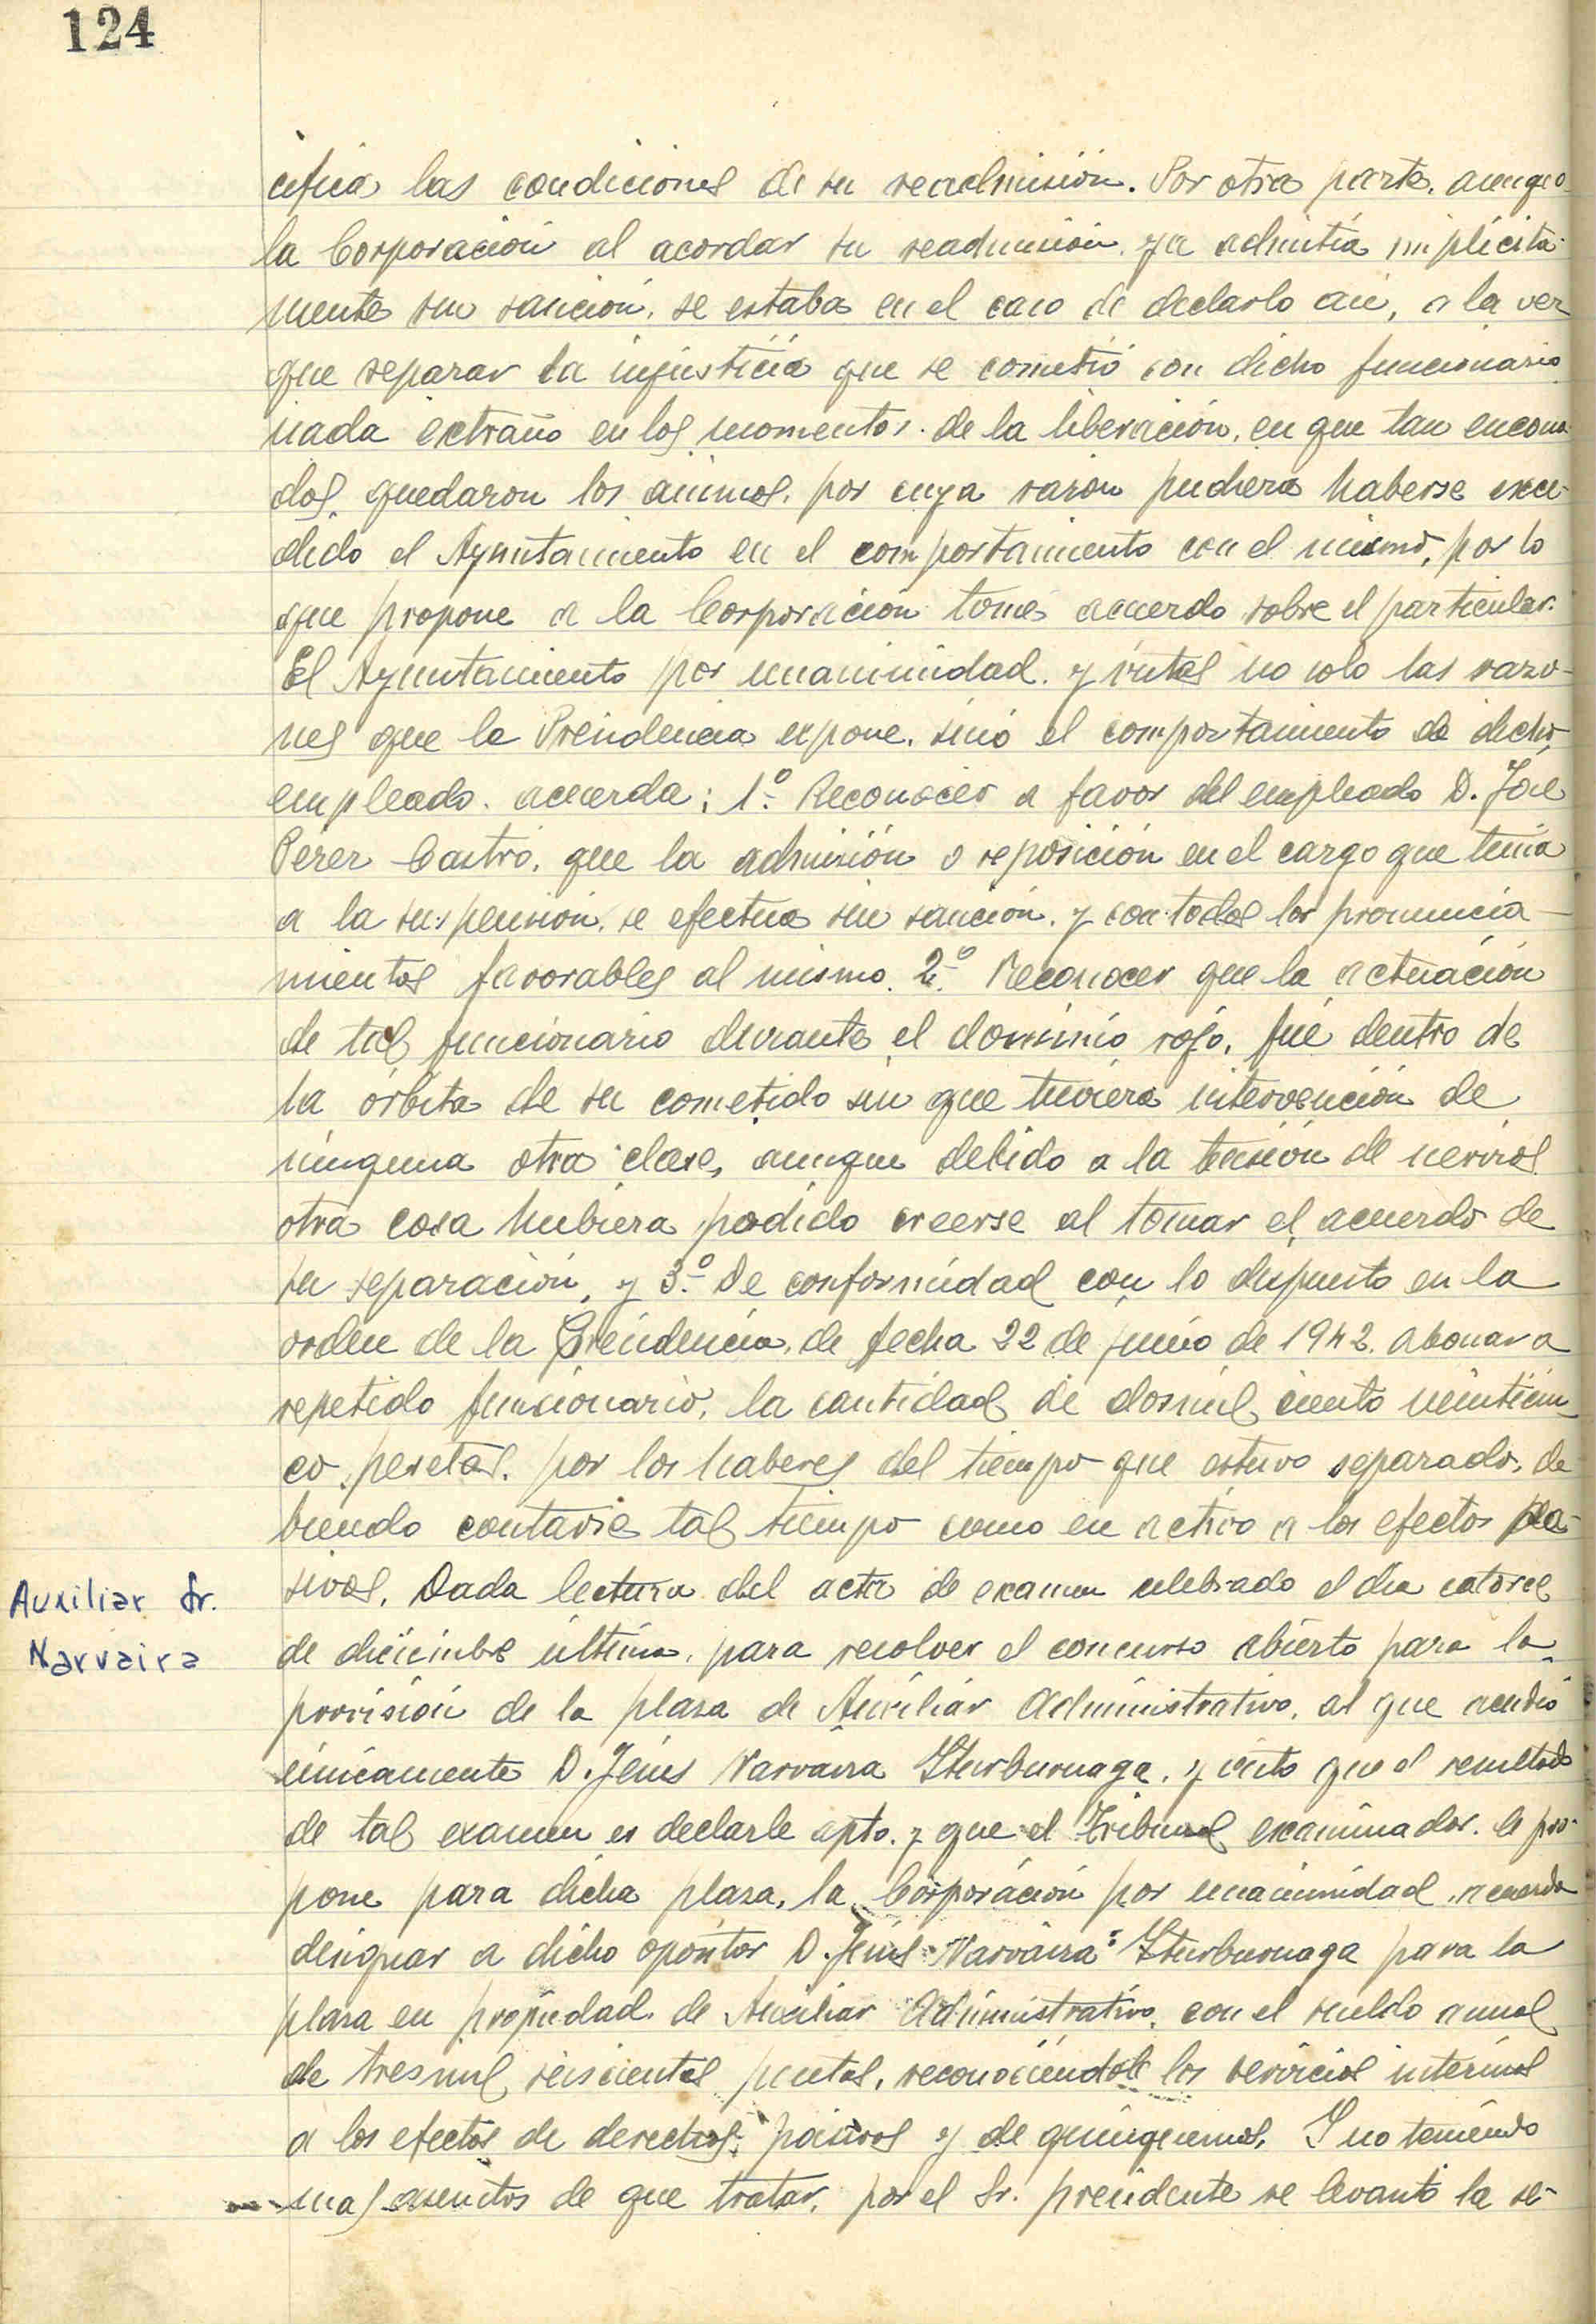 124
cifica las condiciones de su readmisión. Por otra parte, aunque
la Corporación al acordar su readmisión, ya admitía implicita-
mente sin sanción, se estaba en el caso de declarlo asi, a la vez
que reparar la injusticia que se cometió con dicho funcionario
nada extraño en los momentos de la liberación, en que tan encona-
dos quedaron los animos, por cuya razon pudiera haberse exce-
dido el Ayuntamiento en el comportamiento con el mismo, por lo
que propone a la Corporación tome acuerdo sobre el particular.
El Ayuntamiento por unanimidad, y vistas no solo las razo-
nes que la Presidencia expone, sinó el comportamiento de dicho
empleado, acuerda: 1º Reconocer a favor del empleado D. José
Pérez Castro, que la admisión o reposición en el cargo que tenia
a la suspensión, se efectua sin sanción, y con todos los pronuncia-
mientos favorables al mismo. 2º. Reconocer que la actuación
de tal funcionario durante el dominio rojo, fué dentro de
la órbita de su cometido sin que tuviera intervención de
ninguna otra clase, aunque debido a la tensión de nervios
otra cosa hubiera podido creerse al tomar el acuerdo de
su separación, y 3º. De conformidad con lo dispuesto en la
orden de la Presidencia, de fecha 22 de junio de 1942, abonar a
repetido funcionario, la cantidad de dosmil ciento veinticin-
co pesetas, por los haberes del tiempo que estuvo separado, de-
biendo contarse tal tiempo como en activo a los efectos pa-
sivos. Dada lectura del acta de examen celebrado el dia catorce
Auxiliar Sr.
Narvaira
de diciembre último, para resolver el concurso abierto para la
provisión de la plaza de Auxiliar Administrativo, al que acudió
únicamente D. Jesús Narvaiza Yturburuaga, y visto que el resultado
de tal examen es declarle apto, y que el Tribunal examinador, le pro-
pone para dicha plaza, la Corporación por unanimidad, acuerda
designar a dicho opositor D. Jesús Narvaiza Yturburuaga para la
plaza en propiedad de Auxiliar Administrativo, con el sueldo anual
de tresmil seiscientas pesetas, reconociéndole los servicios interinos
a los efectos de derechos pasivos y de quinquenios. Y no teniendo
mas asuntos de que tratar, por el Sr. presidente se levantó la se-